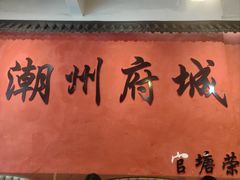 潮州府城
官塘荣